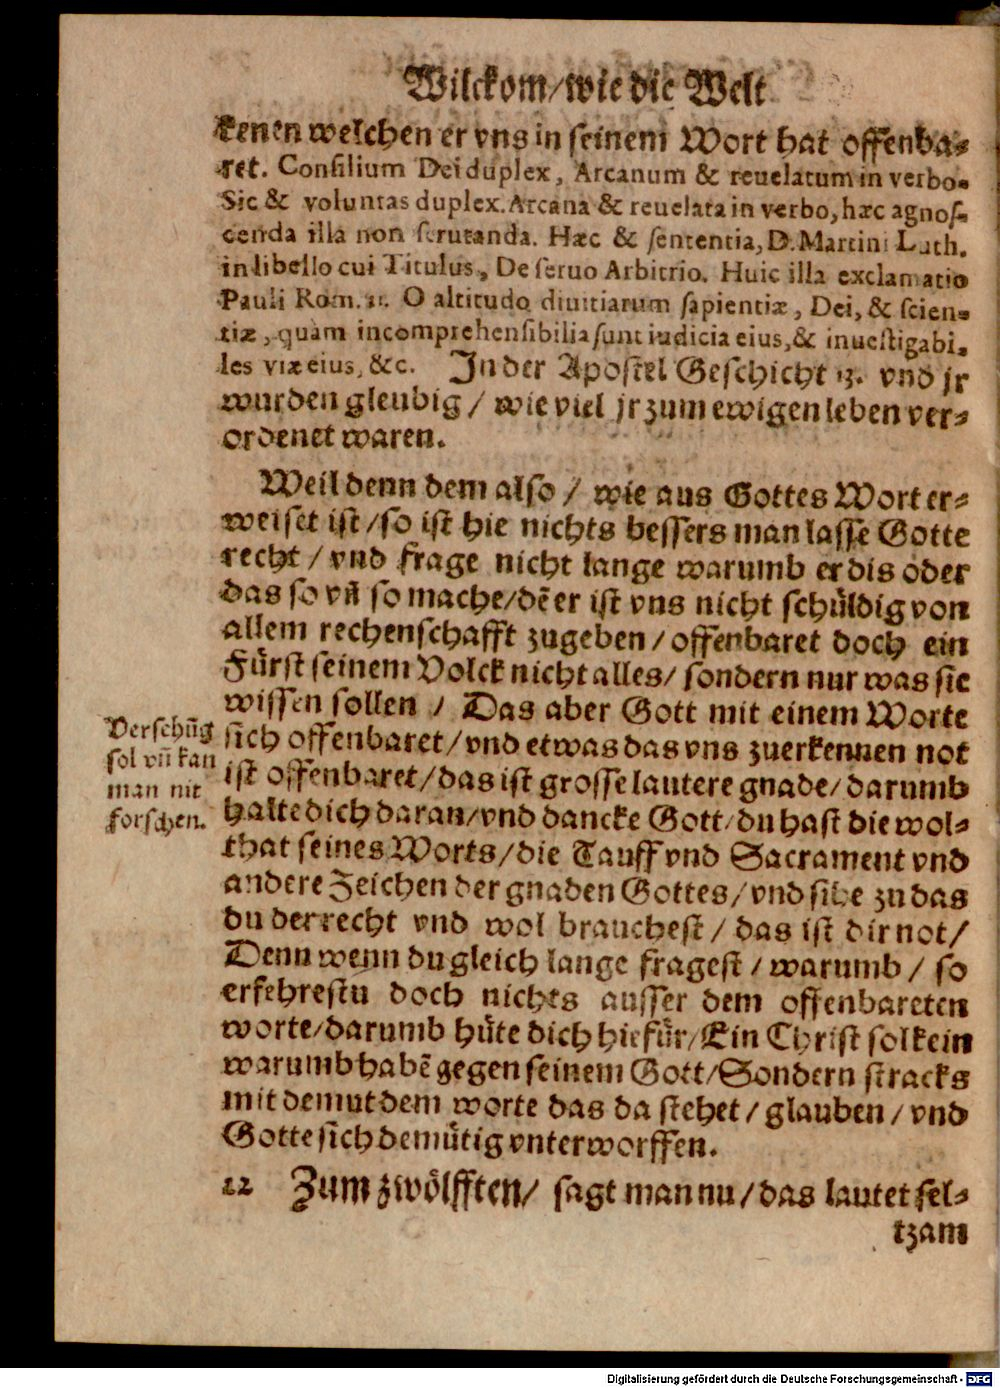 Wilckom/wie die Welt
kenen welchen er vns in seinem Wort hat offenba-
ret. Consilium Dei duplex, Arcanum & reuelatum in verbo.
Sic & voluntas duplex. Arcana & reuelata in verbo, hæc agnos-
cenda illa non scrutanda. Hæc & sententia, D. Martini Luth.
in libello cui Titulus, De seruo Arbitrio. Huic illa exclamatio
Pauli Rom. 11. O altitudo diuitiarum sapientiæ, Dei, & scien-
tiæ, quàm incomprehensibilia sunt iudicia eius, & inuestigabi-
les viæ eius, &c. In der Apostel Geschicht 13. vnd jr
wurden gleubig / wie viel jr zum ewigen leben ver-
ordenet waren.
Weil denn dem also / wie aus Gottes Wort er-
weiset ist/so ist hie nichts bessers man lasse Gotte
recht / vnd frage nicht lange warumb er dis oder
das so vn̄ so mache/dē er ist vns nicht schüldig von
allem rechenschafft zugeben / offenbaret doch ein
Fürst seinem Volck nicht alles/ sondern nur was sie
wissen sollen / Das aber Gott mit einem Worte
sich offenbaret/vnd etwas das vns zuerkennen not
ist offenbaret/das ist grosse lautere gnade/darumb
halte dich daran/vnd dancke Gott/du hast die wol-
that seines Worts/die Tauff vnd Sacrament vnd
andere Zeichen der gnaden Gottes/vnd sihe zu das
du der recht vnd wol brauchest / das ist dir not/
Denn wenn du gleich lange fragest / warumb / so
erfehrestu doch nichts ausser dem offenbareten
worte/darumb hüte dich hiefür/Ein Christ sol kein
warumb habē gegen seinem Gott/Sondern stracks
mit demut dem worte das da stehet/glauben/vnd
Gotte sich demütig vnterworffen.
12 Zum zwölfften/ sagt man nu/das lautet sel-
tzam
Versehūg
sol vn̄ kan
man nit
forschen.
Digitalisierung gefördert durch die Deutsche Forschungsgemeinschaft - DFG